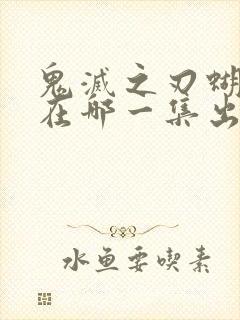 鬼滅之刃蝴
在哪一集出
水鱼要喫素